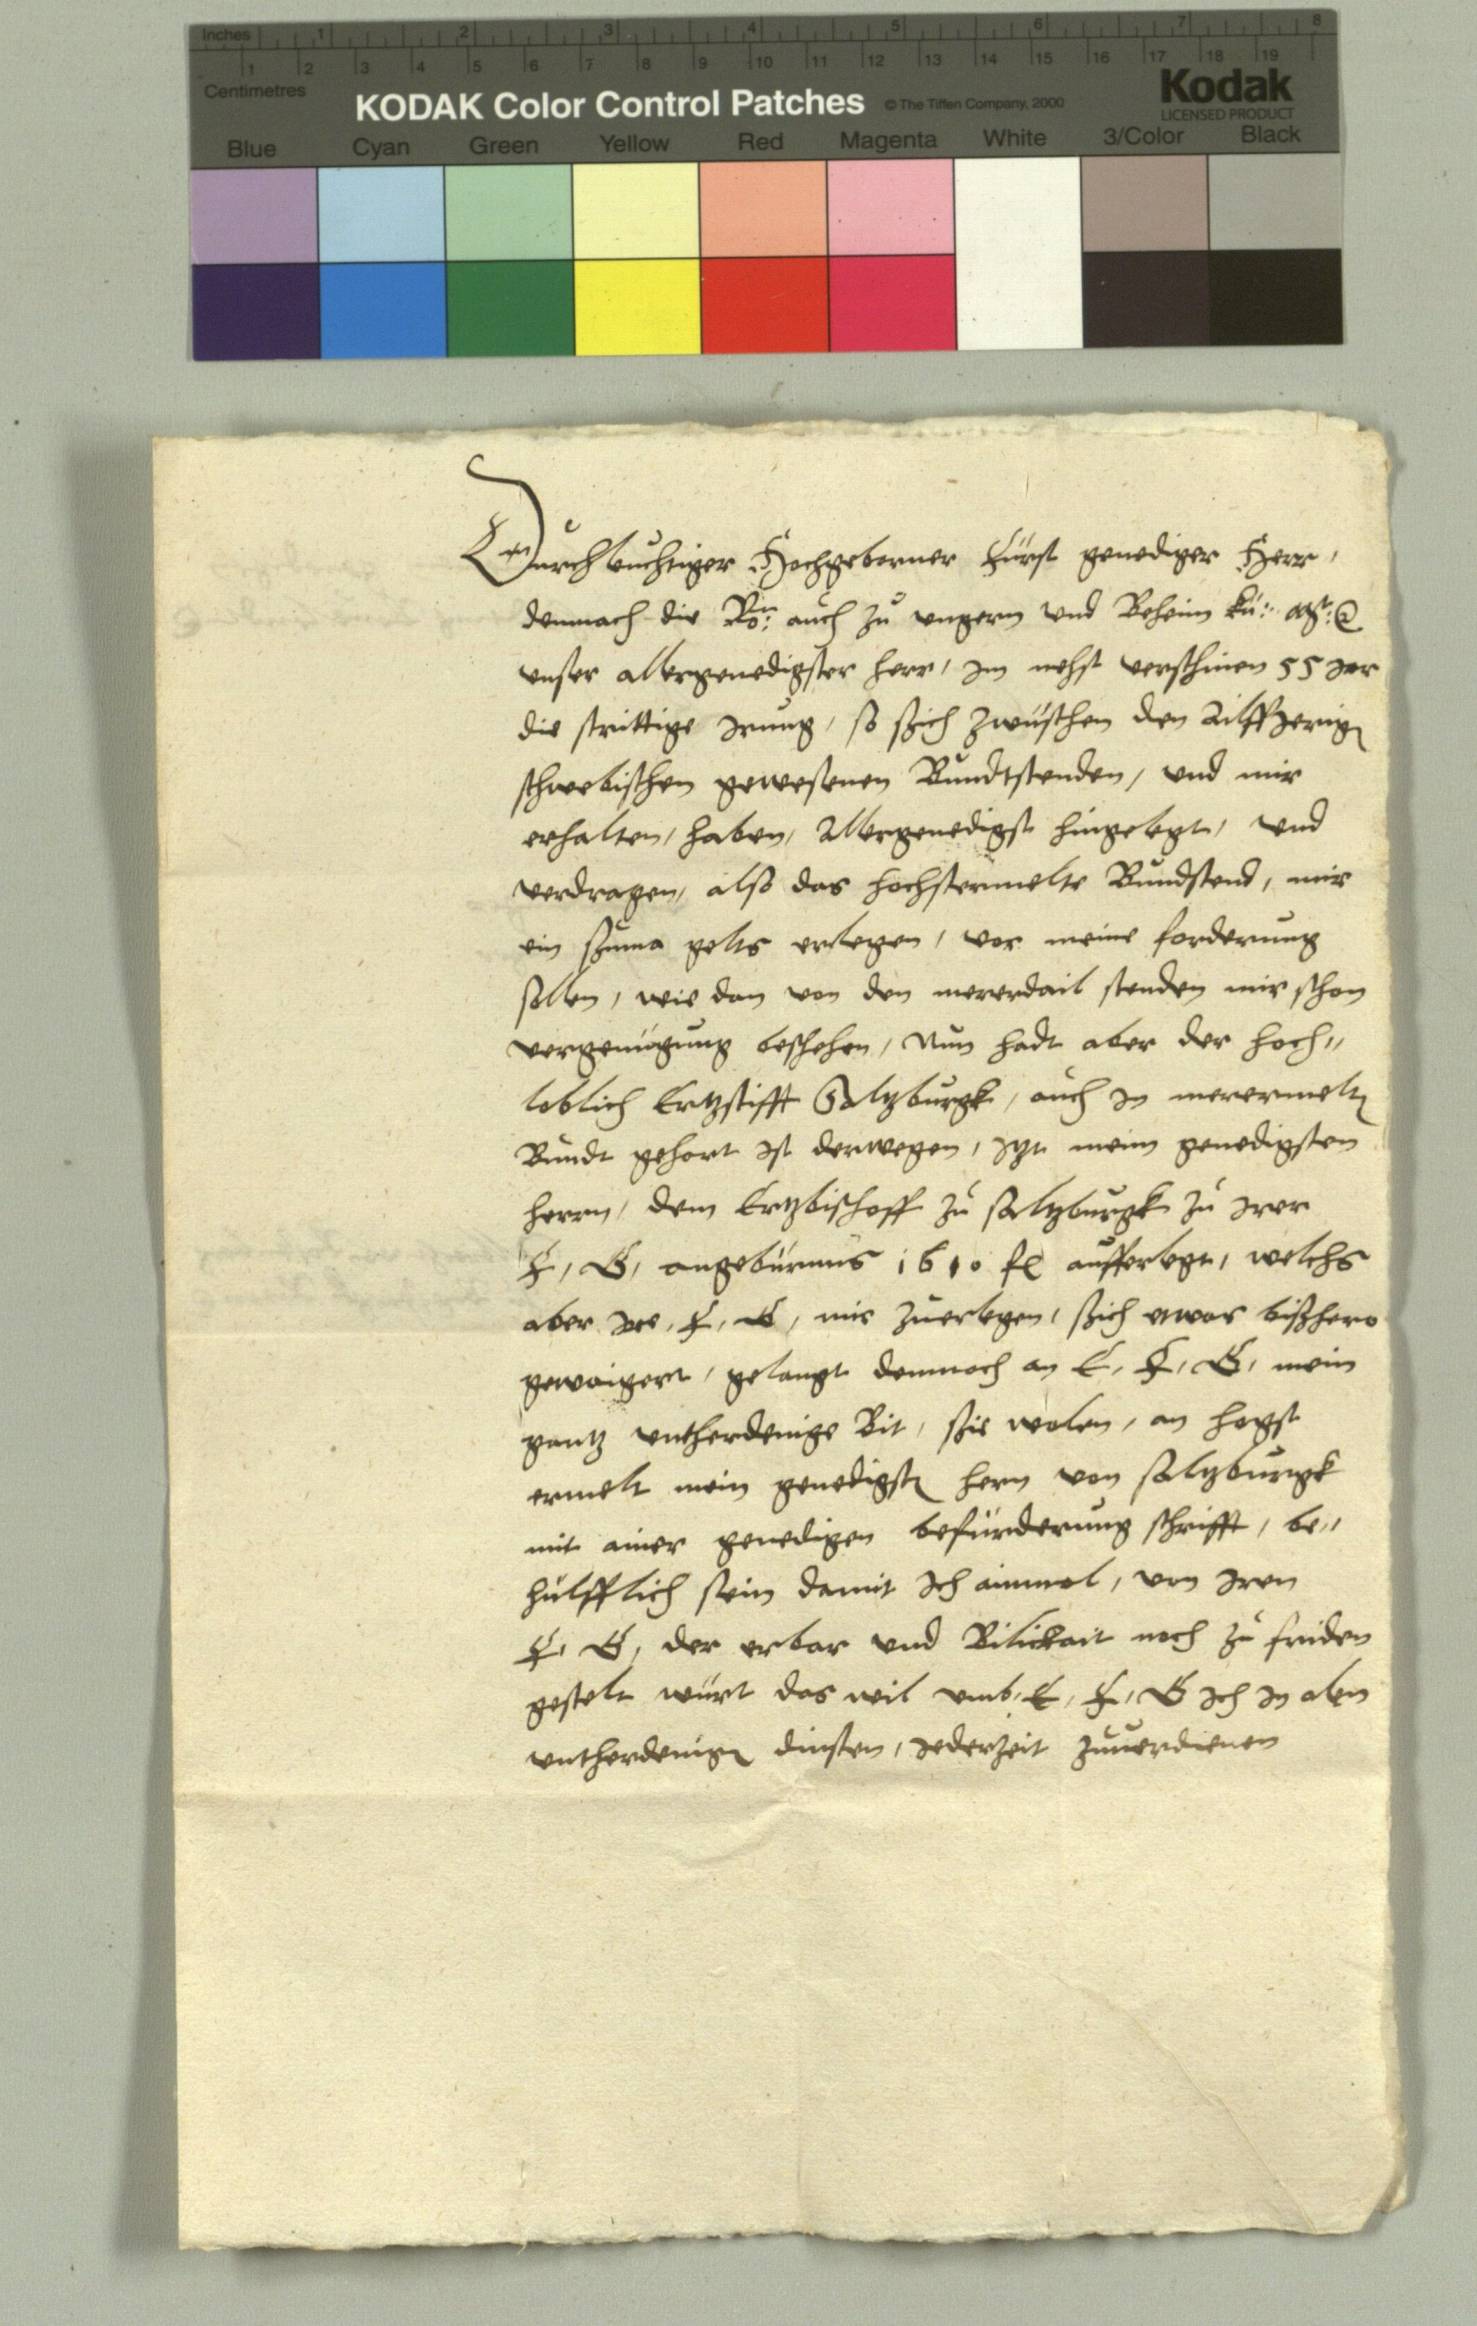 Inches 1 2 3 4 5 6 7 8
1 2 3 4 5 6 7 8 9 10 11 12 13 14 15 16 17 18 19
Centimetres
KODAK Color Control Patches © The Tiffen Company, 2000 Kodak
LICENSED PRODUCT
Blue Cyan Green Yellow Red Magenta White 3/Color Black
Durchleuchtiger Hochgeborner Fürst genediger Herr,
demnach die Rö: auch zu ungern und Beheim kü: Mst:
unser allergenedigster herr, Im nehst verschinen 55 Jar
die strittige Irung, so ßich zwüschen den Ailffjerigen
schwebischen gewesenen Bundtstenden, und mir
erhalten, haben, Allergenedigst hingelegt, und
verdragen, also das hochstermelte Bundstend, mir
ein ßuma gelts erlegen, vor meine forderung
sollen, wie dan von den mererdail stenden mir schon
vergenügung beschehen, Nun hadt aber der hoch„
loblich Ertzstifft Saltzburgk, auch In merermelten
Bundt gehort Ist derwegen, Itzt meim genedigsten
herrn, dem Ertzbischoff zu saltzburgk zu Irer
F, G, angebürnus 1610 fl aufferlegt, welchs
aber Ire, F, G, mir zuerlegen, ßich etwas bißhero
gewaigert, gelangt demnach an E, F, G, mein
gantz untherdenige Bit, ßie wolen, an hogst
ermelt mein genedigsten hern von saltzburgk
mit ainer genedigen befürderung schrifft, be„
hülfflich sein damit Ich ainmal, von Iren
F, G, der erbar und Bilichait noch zu friden
gestelt würt das wil umb, E, F, G Ich In alen
untherdenigen dinsten, Iederzeit zuuerdienen